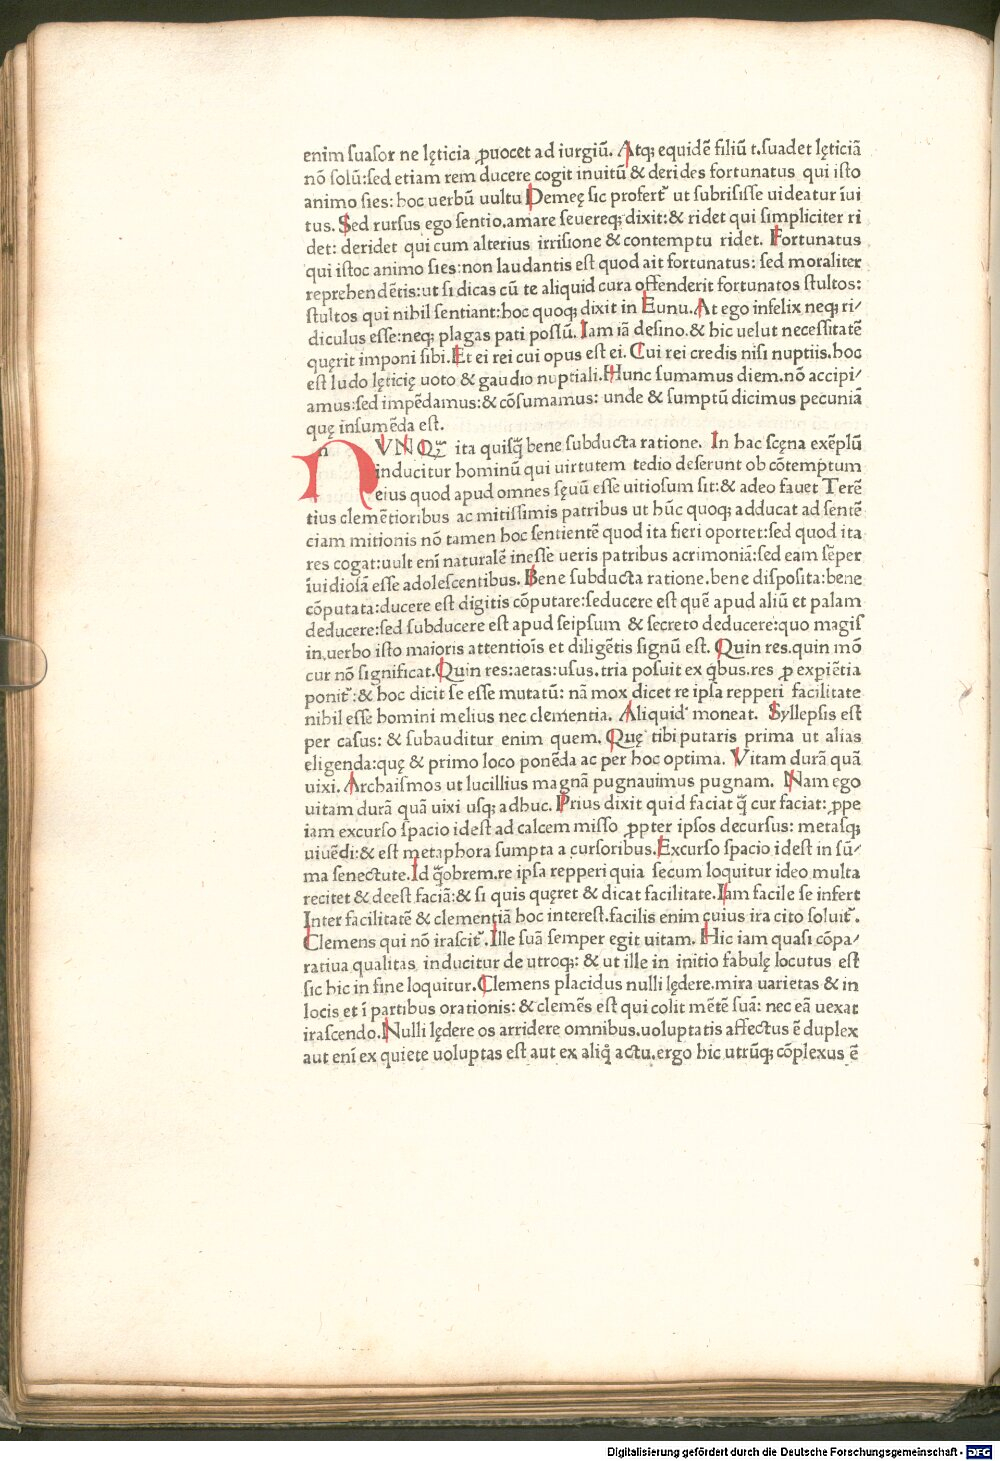 enim ſuaſor ne lęticia ꝓuocet ad iurgiū. Atq; equidē filiū t.ſuadet lęticiā
nō ſolū:ſed etiam rem ducere cogit inuitū & derides fortunatus qui iſto
animo ſies: hoc uerbū uultu Demeę ſic profert᷑ ut ſubriſiſſe uideatur īui
tus. Sed rurſus ego ſentio.amare ſeuereq; dixit:& ridet qui ſimpliciter ri
det: deridet qui cum alterius irriſione & contemptu ridet. Fortunatus
qui iſtoc animo ſies:non laudantis eſt quod ait fortunatus: ſed moraliter
reprehendētis:ut ſi dicas cū te aliquid cura offenderit fortunatos ſtultos:
ſtultos qui nihil ſentiant:hoc quoq; dixit in Eunu.At ego infelix neq; ri/
diculus eſſe:neq; plagas pati poſſū. Iam iā deſino.& hic uelut neceſſitatē
quęrit imponi ſibi.Et ei rei cui opus eſt ei. Cui rei credis niſi nuptiis.hoc
eſt ludo lęticię uoto & gaudio nuptiali.Hunc ſumamus diem.nō accipi/
amus:ſed impēdamus:& cōſumamus: unde & ſumptū dicimus pecuniā
quę inſumēda eſt.
n VNQꝫ ita quiſq̄ bene ſubducta ratione. In hac ſcęna exēplū
inducitur hominū qui uirtutem tedio deſerunt ob cōtemptum
eius quod apud omnes ſęuū eſſe uitioſum ſit:& adeo fauet Terē
tius clemētioribus ac mitiſſimis patribus ut hūc quoq; adducat ad ſentē
ciam mitionis nō tamen hoc ſentientē quod ita fieri oportet:ſed quod ita
res cogat:uult enī naturalē ineſſe ueris patribus acrimoniā:ſed eam ſēper
īuidioſā eſſe adoleſcentibus. Bene ſubducta ratione.bene diſpoſita:bene
cōputata:ducere eſt digitis cōputare:ſeducere eſt quē apud aliū et palam
deducere:ſed ſubducere eſt apud ſeipſum & ſecreto deducere:quo magiſ
in uerbo iſto maioris attentiōis et diligētis ſignū eſt. Quin res.quin mō
cur nō ſignificat.Quin res:aetas:uſus.tria poſuit ex q̇bus.res ꝑ expiētia
ponit᷑:& hoc dicit ſe eſſe mutatū: nā mox dicet re ipſa repperi facilitate
nihil eſſe homini melius nec clementia. Aliquid moneat. Syllepſis eſt
per caſus: & ſubauditur enim quem. Quę tibi putaris prima ut alias
eligenda:quę & primo loco ponēda ac per hoc optima. Vitam durā quā
uixi. Archaiſmos ut lucillius magnā pugnauimus pugnam. Nam ego
uitam durā quā uixi uſq; adhuc. Prius dixit quid faciat q̄ cur faciat: ꝓpe
iam excurſo ſpacio ideſt ad calcem miſſo ꝓpter ipſos decurſus: metaſq;
uiuēdi:& eſt metaphora ſumpta a curſoribus.Excurſo ſpacio ideſt in ſū/
ma ſenectute.Id q̄obrem.re ipſa repperi quia ſecum loquitur ideo multa
recitet & deeſt faciā:& ſi quis quęret & dicat facilitate.Iam facile ſe infert
Inter facilitatē & clementiā hoc intereſt.facilis enim cuius ira cito ſoluit᷑.
Clemens qui nō iraſcit᷑.Ille ſuā ſemper egit uitam. Hic iam quaſi cōpa/
ratiua qualitas inducitur de utroq;: & ut ille in initio fabulę locutus eſt
ſic hic in fine loquitur.Clemens placidus nulli lędere.mira uarietas & in
locis et ī partibus orationis: & clemēs eſt qui colit mētē ſuā: nec eā uexat
iraſcendo.Nulli lędere os arridere omnibus.uoluptatis affectus ē duplex
aut enī ex quiete uoluptas eſt aut ex aliq̇ actu.ergo hic utrūq; cōplexus ē
Digitalisierung gefördert durch die Deutsche Forschungsgemeinschaft - DFG